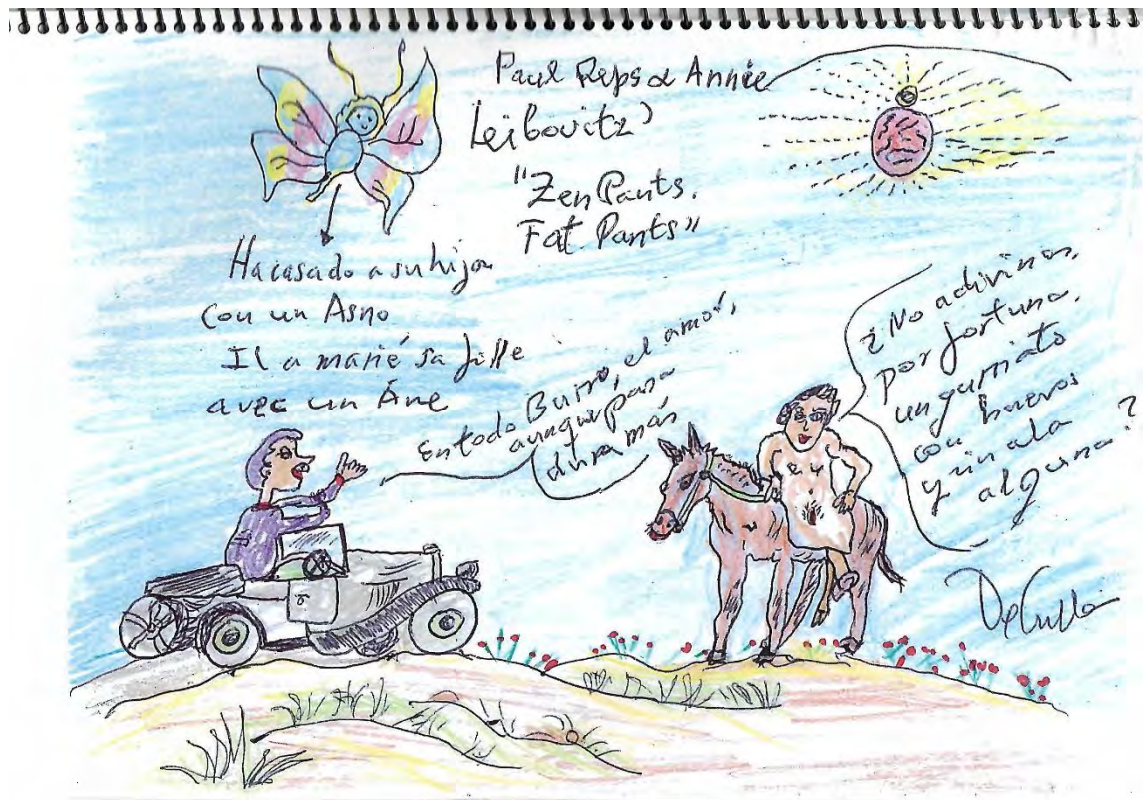 Paul Reps & Annie
Leibovitz
"Zen Pants.
Fat Pants"
Ha casado a su hija
con un Asno
Il a marié sa fille
avec un Âne
En todo Burro, el amor,
aunque pasa
dura más
¿No adivinas,
por fortuna,
un gurriato
con huevos
y sin ala
alguna?